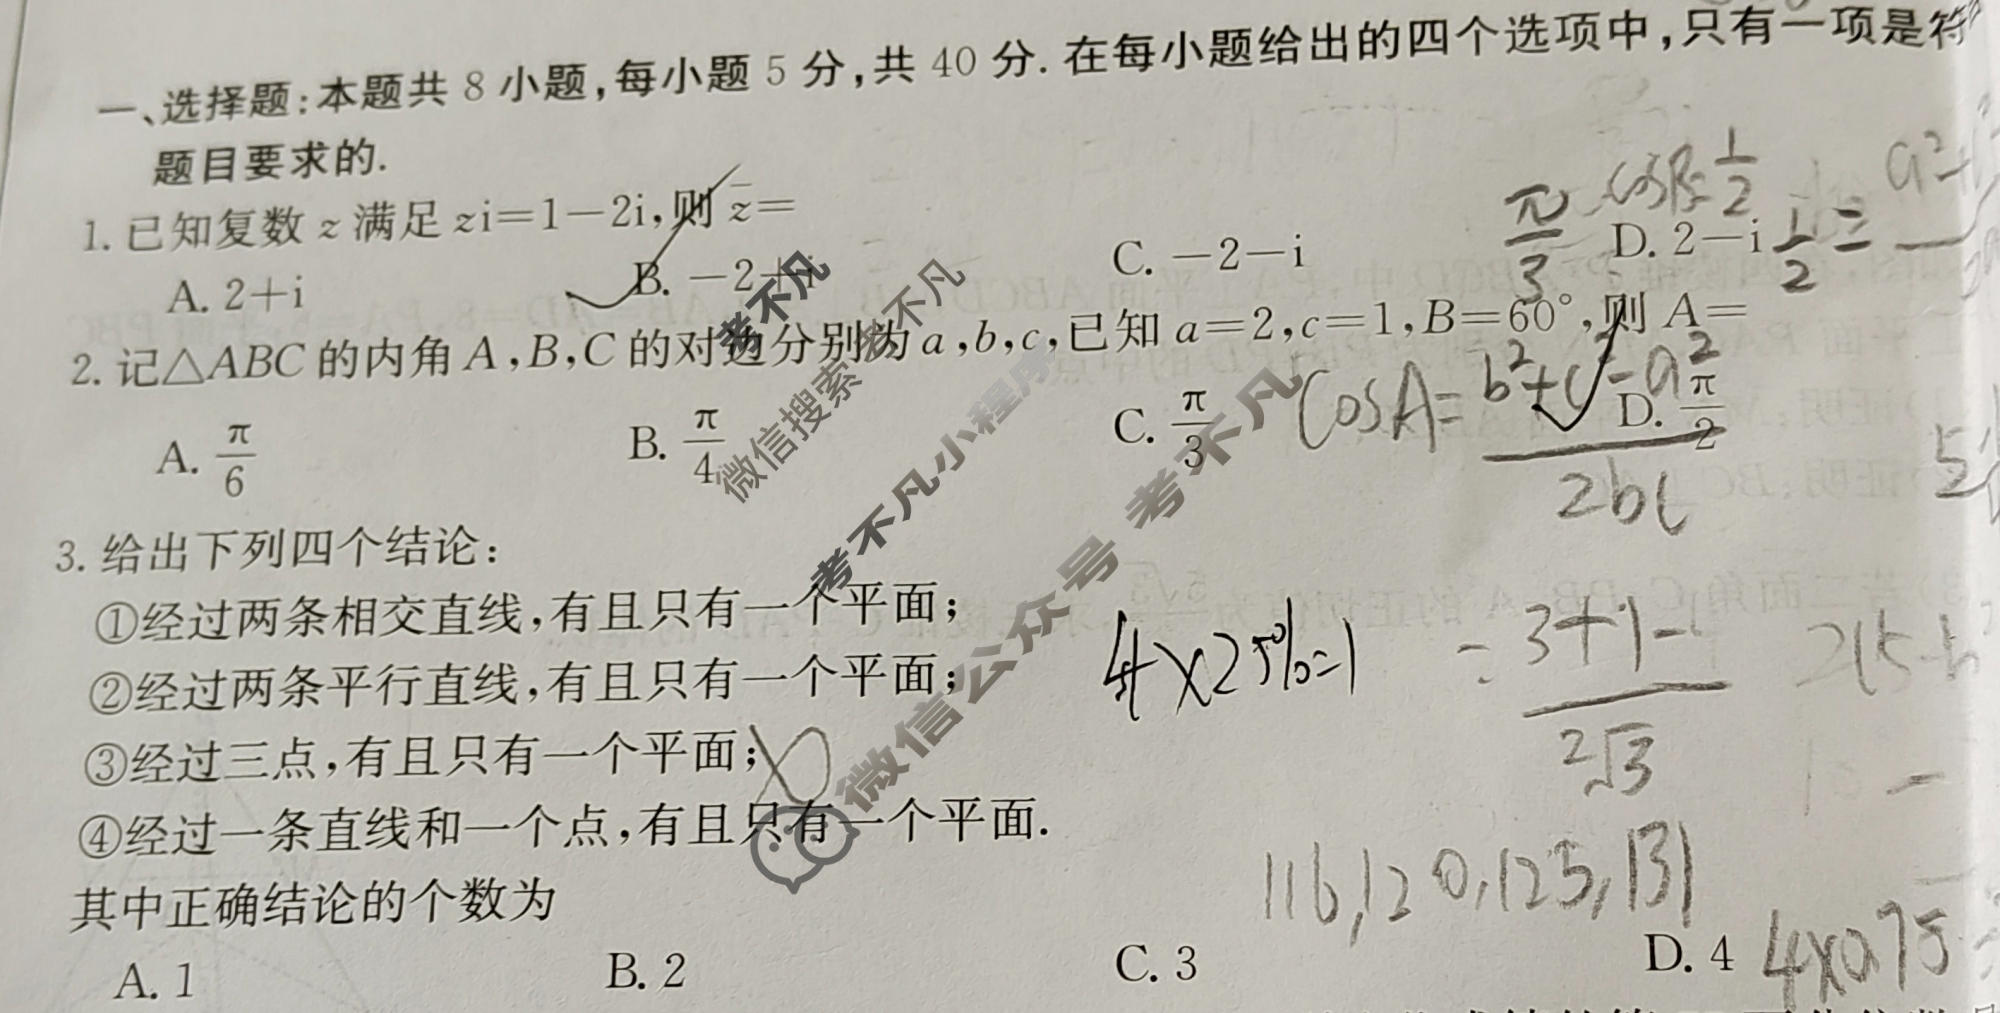 一、选择题:本题共 8 小题,每小题 5 分,共 40 分. 在每小题给出的四个选项中,只有一项是符
题目要求的.
1. 已知复数 z 满足 zi=1-2i,则 z̄=
A. 2+i B. -2+i C. -2-i D. 2-i
π/3 cosB=1/2 1/2=
2. 记△ABC 的内角 A,B,C 的对边分别为 a,b,c,已知 a=2,c=1,B=60°,则 A=
A. π/6 B. π/4 C. π/3 D. π/2
cosA=b²+c²-a²/2bc
3. 给出下列四个结论:
①经过两条相交直线,有且只有一个平面;
②经过两条平行直线,有且只有一个平面;
4×25%=1
③经过三点,有且只有一个平面;
④经过一条直线和一个点,有且只有一个平面.
116,120,125,131
其中正确结论的个数为
A. 1 B. 2 C. 3 D. 4
4×0.75
考不凡
微信搜索 考不凡
考不凡小程序
微信公众号 考不凡